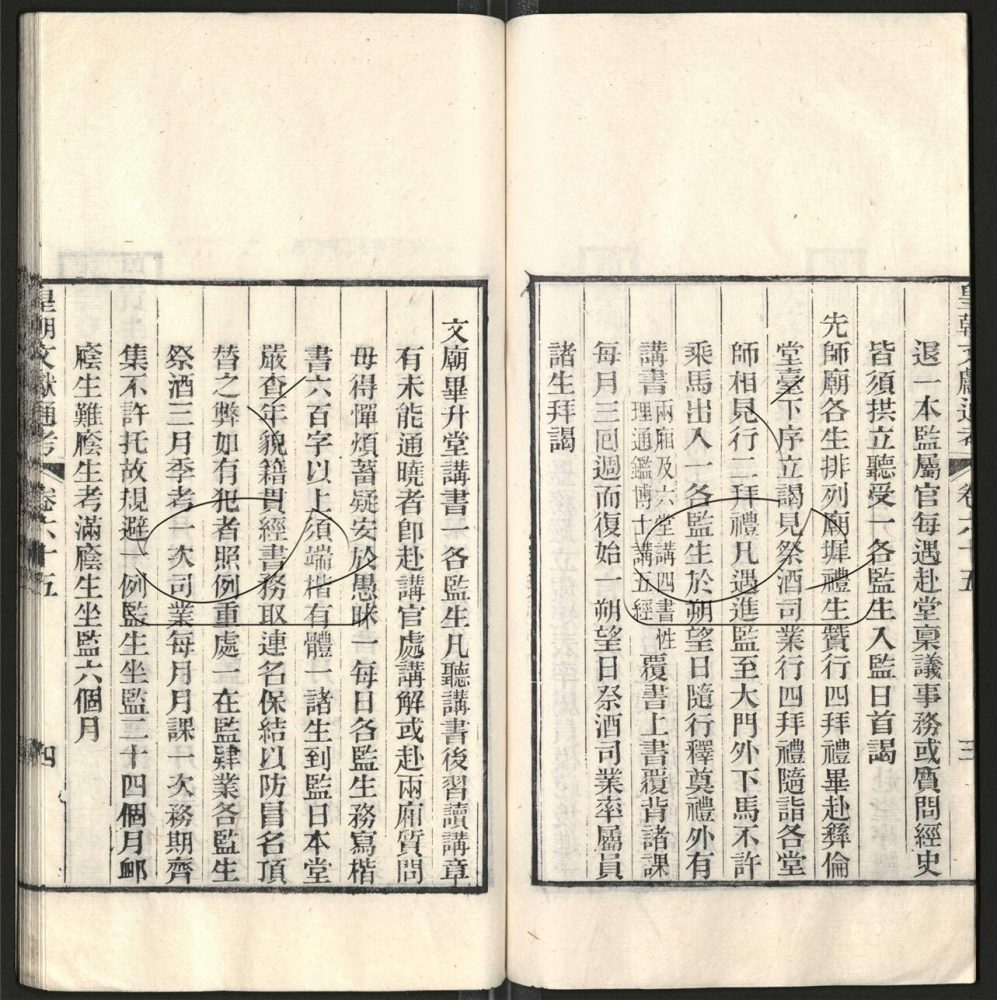 皇朝文獻通考 卷六十五 三
退一本監屬官每遇赴堂稟議事務或質問經史
皆須拱立聽受一各監生入監日首謁
先師廟各生排列廟墀禮生贊行四拜禮畢赴彝倫
堂臺下序立謁見祭酒司業行四拜禮隨詣各堂
師相見行二拜禮凡遇進監至大門外下馬不許
乘馬出入一各監生於朔望日隨行釋奠禮外有
講書兩廂及六堂講四書性
理通鑑博士講五經覆書上書覆背諸課
每月三囘週而復始一朔望日祭酒司業率屬員
諸生拜謁
文廟畢升堂講書一各監生凡聽講書後習讀講章
有未能通曉者卽赴講官處講解或赴兩廂質問
毋得憚煩蓄疑安於愚昧一每日各監生務寫楷
書六百字以上須端楷有體 諸生到監日本堂
嚴查年貌籍貫經書務取連名保結以防冒名頂
替之弊如有犯者照例重處 在監肄業各監生
祭酒三月季考一次司業每月月課一次務期齊
集不許托故規避一例監生坐監二十四個月䘏
廕生難廕生考滿廕生坐監六個月
皇朝文獻通考 卷六十五 四